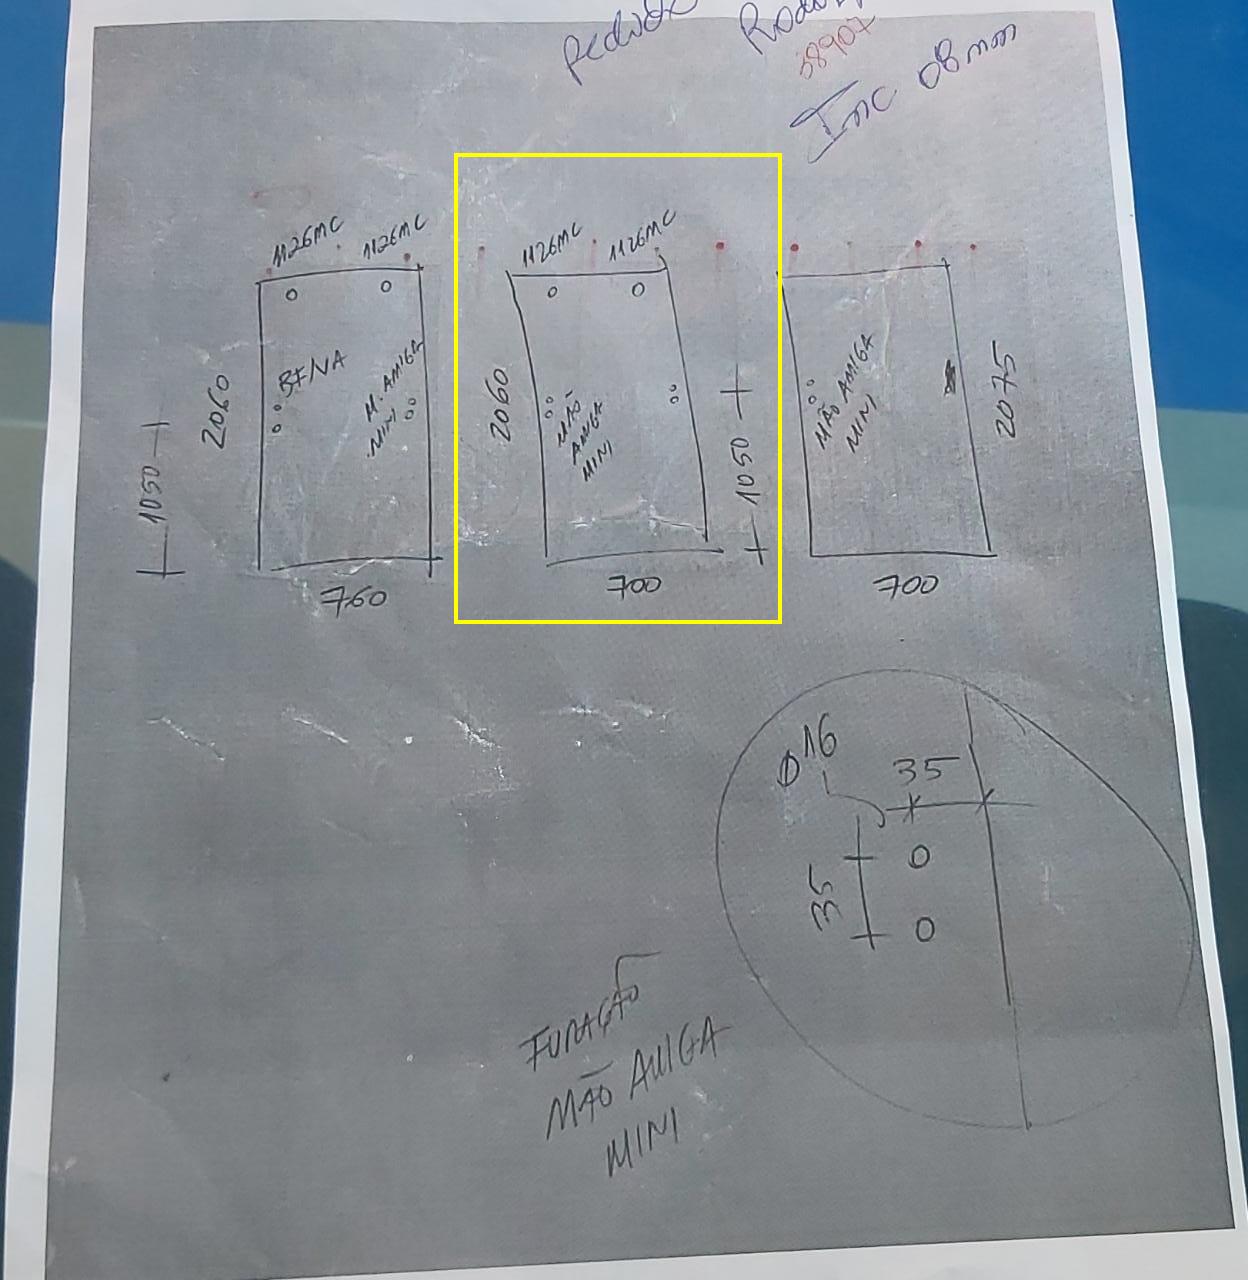 38907
Inc 08mm
1126MC 1126MC
2060
M. AMIGA
MINI
1050
760
1126MC 1126MC
2060
MÃO
AMIGA
MINI
1050
700
MÃO AMIGA
MINI
2075
700
Ø16
35
35
FURAÇÃO
MÃO AMIGA
MINI